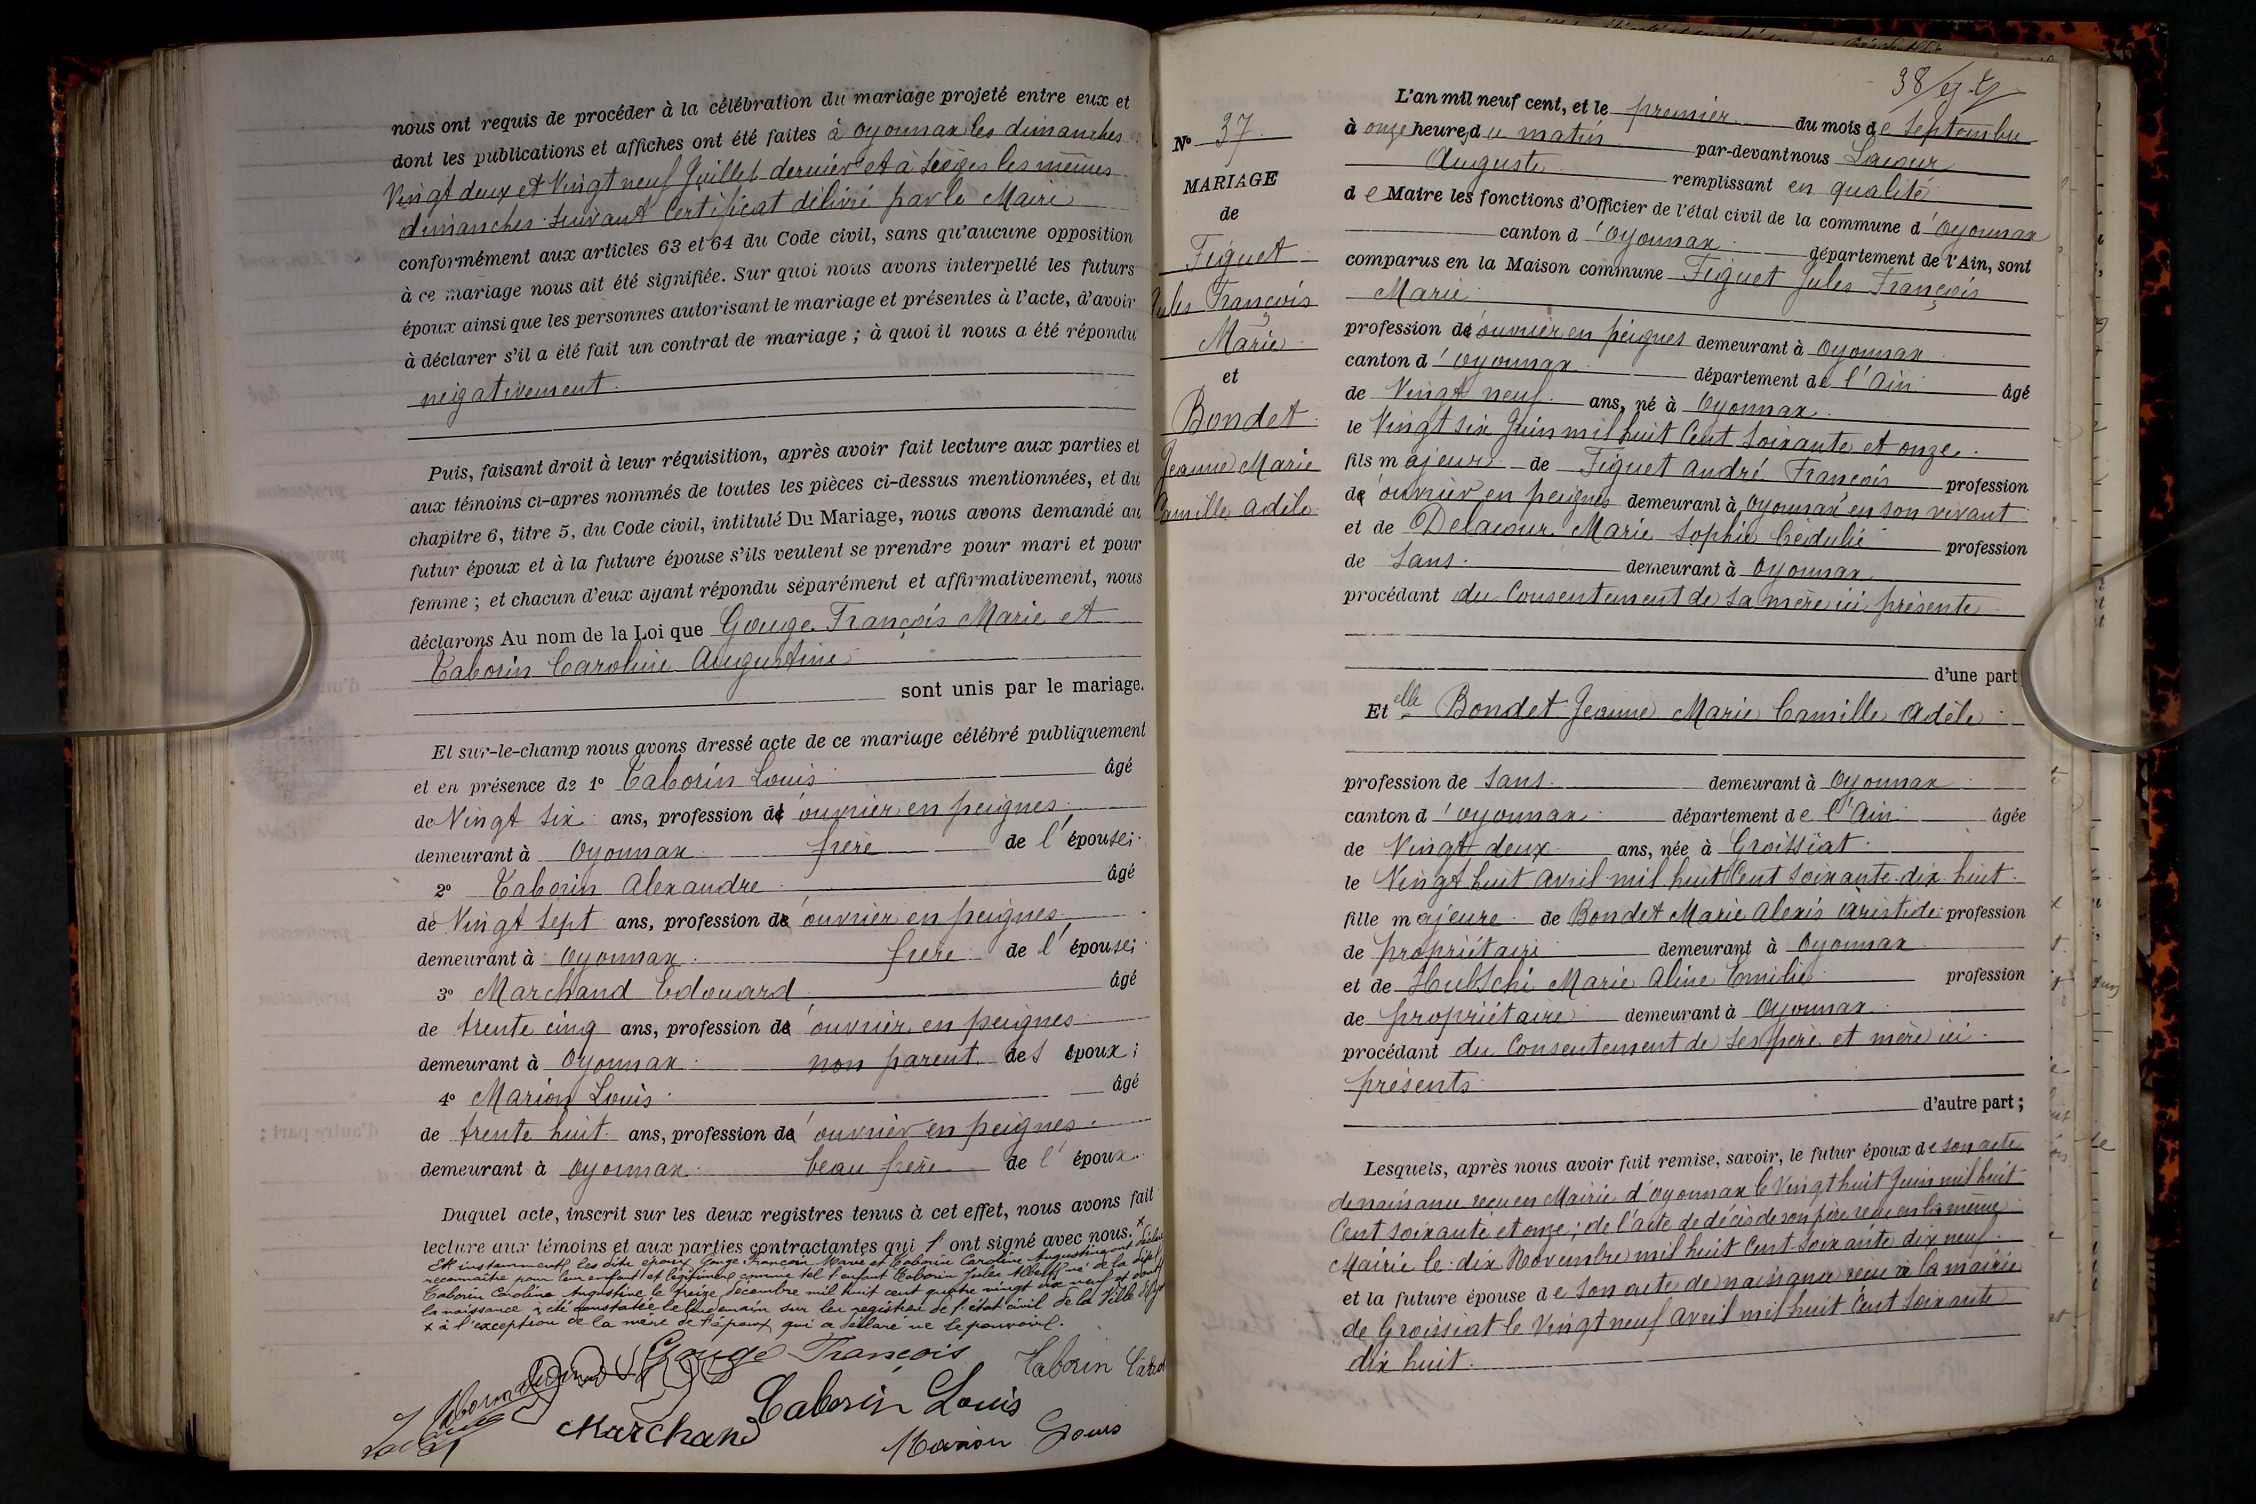 nous ont requis de procéder à la célébration du mariage projeté entre eux et
dont les publications et affiches ont été faites à Oyonnax les dimanches
Vingt deux et Vingt neuf Juillet dernier et à Siéges les mêmes
dimanches suivant Certificat délivré par le Maire
conformément aux articles 63 et 64 du Code civil, sans qu'aucune opposition
à ce mariage nous ait été signifiée. Sur quoi nous avons interpellé les futurs
époux ainsi que les personnes autorisant le mariage et présentes à l'acte, d'avoir
à déclarer s'il a été fait un contrat de mariage ; à quoi il nous a été répondu
négativement.
Puis, faisant droit à leur réquisition, après avoir fait lecture aux parties et
aux témoins ci-apres nommés de toutes les pièces ci-dessus mentionnées, et du
chapitre 6, titre 5, du Code civil, intitulé Du Mariage, nous avons demandé au
futur époux et à la future épouse s'ils veulent se prendre pour mari et pour
femme ; et chacun d'eux ayant répondu séparément et affirmativement, nous
déclarons Au nom de la Loi que Gouge François Marie et
Taborin Caroline Augustine
sont unis par le mariage.
Et sur-le-champ nous avons dressé acte de ce mariage célébré publiquement
et en présence de 1° Taborin Louis âgé
de Vingt six ans, profession d'ouvrier en peignes
demeurant à Oyonnax frère de l'épouse;
2° Taborin Alexandre âgé
de Vingt sept ans, profession d'ouvrier en peignes
demeurant à Oyonnax frère de l'épouse;
3° Marchand Edouard âgé
de trente cinq ans, profession d'ouvrier en peignes
demeurant à Oyonnax non parent des époux;
4° Marion Louis âgé
de trente huit ans, profession d'ouvrier en peignes
demeurant à Oyonnax beau frère de l'époux.
Duquel acte, inscrit sur les deux registres tenus à cet effet, nous avons fait
lecture aux témoins et aux parties contractantes qui l'ont signé avec nous. x
Et instamment les dits époux Gouge François Marie et Taborin Caroline Augustine ont déclaré
reconnaître pour leur enfant et légitimer comme tel l'enfant Taborin Jules Albert né de la dite
Taborin Caroline Augustine le treize Decembre mil huit cent quatre vingt dix neuf et dont
la naissance a été constatée le lendemain sur les registres de l'état civil de la Ville
x à l'exception de la mère de l'époux qui a déclaré ne le pouvoir.
Gouge François
Taborin
Taborin Louis
Marchand
Marion Louis
38
N° 37
MARIAGE
de
Figuet
Jules François
Marie
et
Bondet
Jeanne Marie
Camille Adèle
L'an mil neuf cent, et le premier du mois de Septembre
à onze heures du matin par-devant nous Lacour
Auguste remplissant en qualité
de Maire les fonctions d'Officier de l'état civil de la commune d'Oyonnax
canton d'Oyonnax département de l'Ain, sont
comparus en la Maison commune Figuet Jules François
Marie
profession d'ouvrier en peignes demeurant à Oyonnax
canton d'Oyonnax département de l'Ain âgé
de Vingt neuf ans, né à Oyonnax
le Vingt six Juin mil huit Cent Soixante et onze
fils majeur de Figuet André François profession
d'ouvrier en peignes demeurant à Oyonnax en son vivant
et de Delacour Marie Sophie Céidulie profession
de Sans demeurant à Oyonnax
procédant du Consentement de Sa mère ici présente
d'une part
Et elle Bondet Jeanne Marie Camille Adèle
profession de Sans demeurant à Oyonnax
canton d'Oyonnax département de l'Ain âgée
de Vingt deux ans, née à Groissiat
le Vingt huit Avril mil huit Cent Soixante dix huit
fille majeure de Bondet Marie Alexis Aristide profession
de propriétaire demeurant à Oyonnax
et de Hultschi Marie Aline Emilie profession
de propriétaire demeurant à Oyonnax
procédant du Consentement de Ses père et mère ici
présents
d'autre part ;
Lesquels, après nous avoir fait remise, savoir, le futur époux de son acte
de naissance reçu en Mairie d'Oyonnax le Vingt huit Juin mil huit
Cent Soixante et onze ; de l'acte de décès de son père reçu en la même
Mairie le dix Novembre mil huit Cent Soixante dix neuf
et la future épouse de Son acte de naissance reçu à la mairie
de Groissiat le Vingt neuf Avril mil huit Cent Soixante
dix huit.